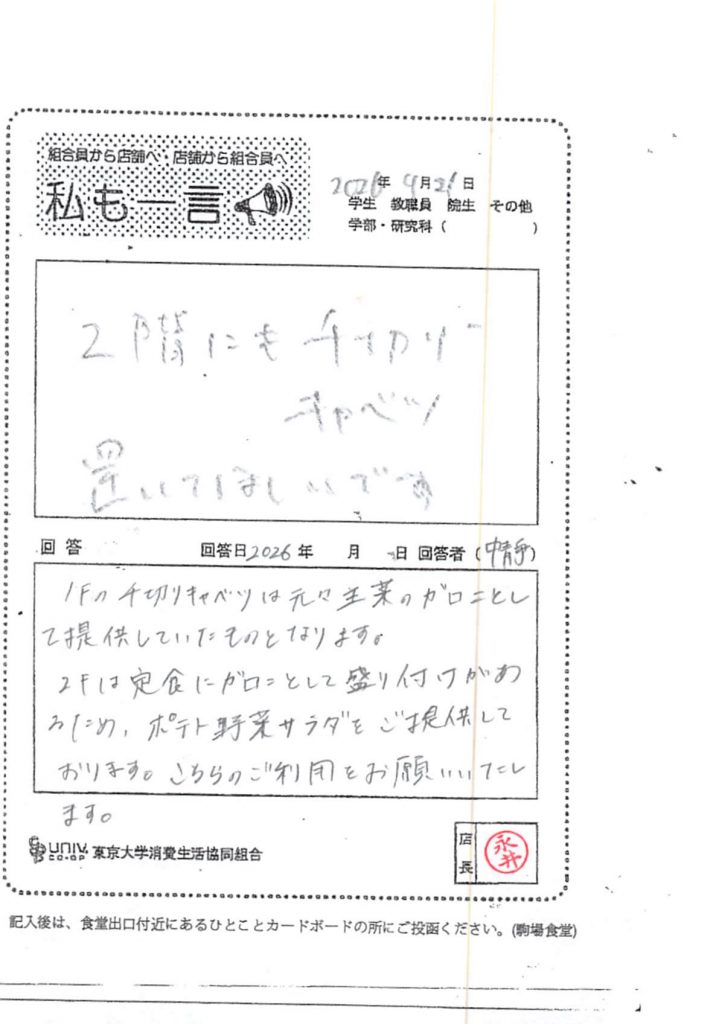 組合員から店舗へ・店舗から組合員へ
私も一言
2026年 4月21日
学生 教職員 院生 その他
学部・研究科( )
2階にも千切り
キャベツ
置いてほしいです
回答 回答日2026年 月 日 回答者(中静)
1Fの千切りキャベツは元々主菜のガロニとし
て提供していたものとなります。
2Fは定食にガロニとして盛り付けがあ
るため、ポテト野菜サラダをご提供して
おります。こちらのご利用をお願いいたし
ます。
UNIV.
CO-OP
東京大学消費生活協同組合
店長
永井
記入後は、食堂出口付近にあるひとことカードボードの所にご投函ください。(駒場食堂)